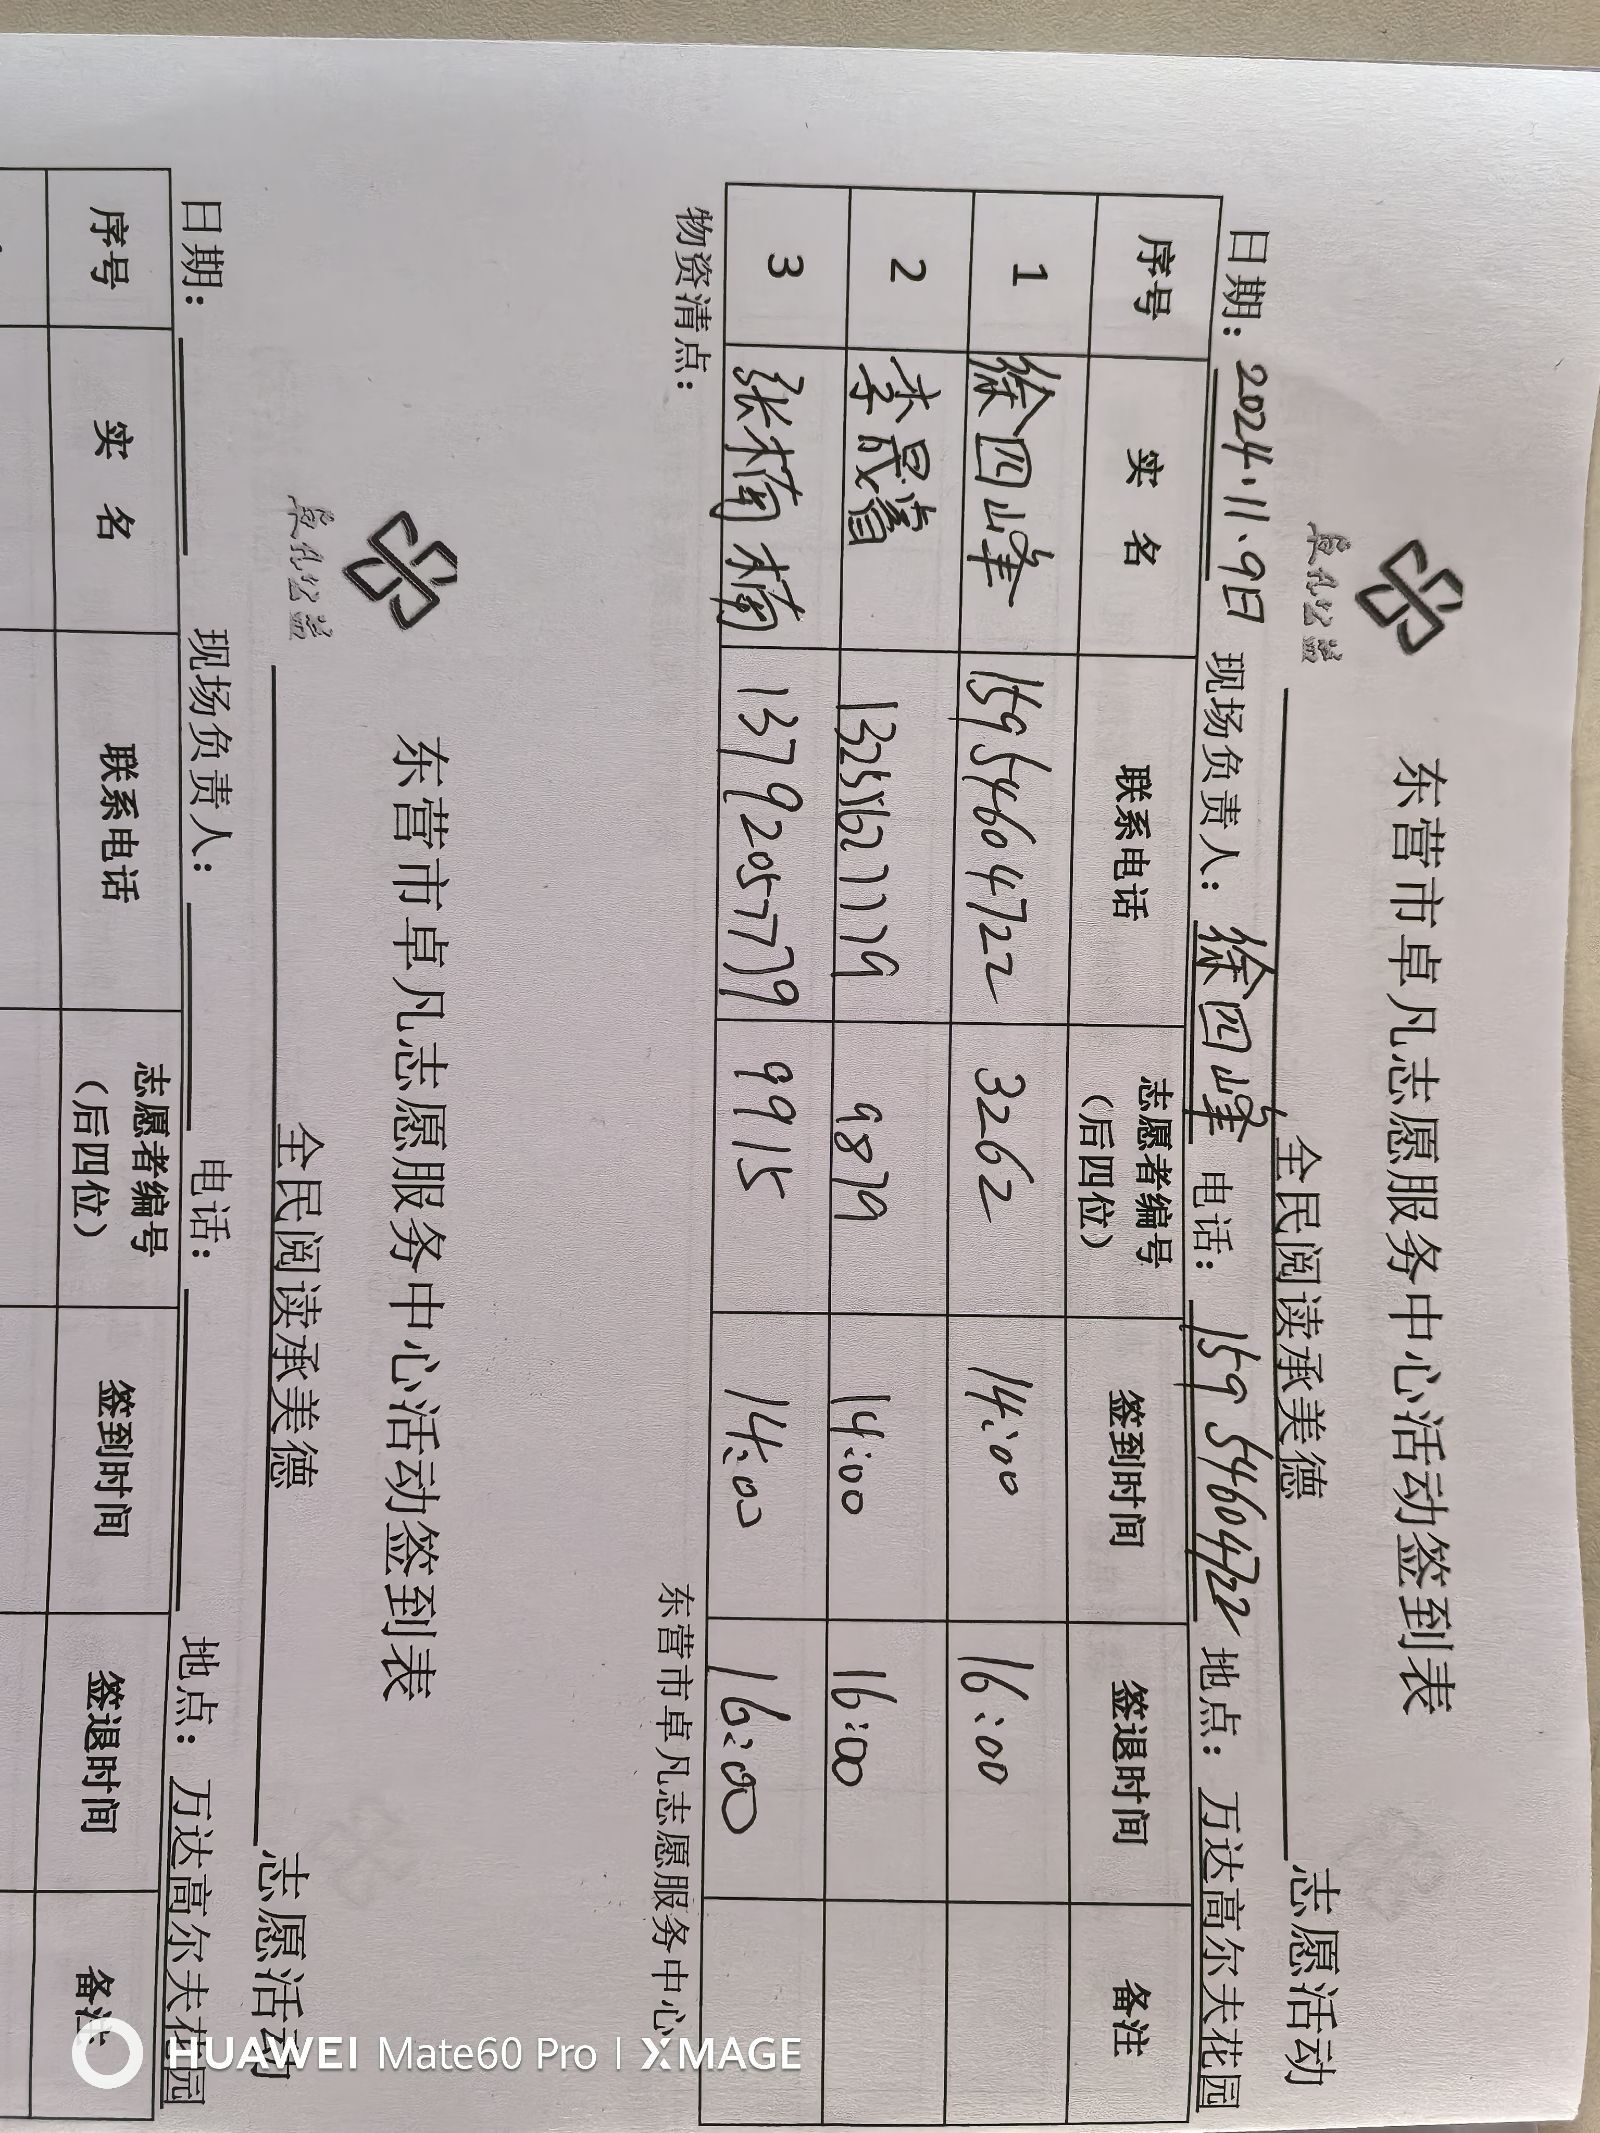 东营市卓凡志愿服务中心活动签到表
卓凡公益
全民阅读承美德 志愿活动
日期：2024.11.9日 现场负责人：徐四峰 电话：15954604722 地点：万达高尔夫花园
序号 实名 联系电话 志愿者编号（后四位） 签到时间 签退时间 备注
1 徐四峰 15954604722 3262 14:00 16:00
2 李晟睿 13251627779 9879 14:00 16:00
3 张楠楠 13792057779 9915 14:00 16:00
物资清点： 东营市卓凡志愿服务中心
东营市卓凡志愿服务中心活动签到表
卓凡公益
全民阅读承美德 志愿活动
日期： 现场负责人： 电话： 地点：万达高尔夫花园
序号 实名 联系电话 志愿者编号（后四位） 签到时间 签退时间 备注
HUAWEI Mate60 Pro | XMAGE